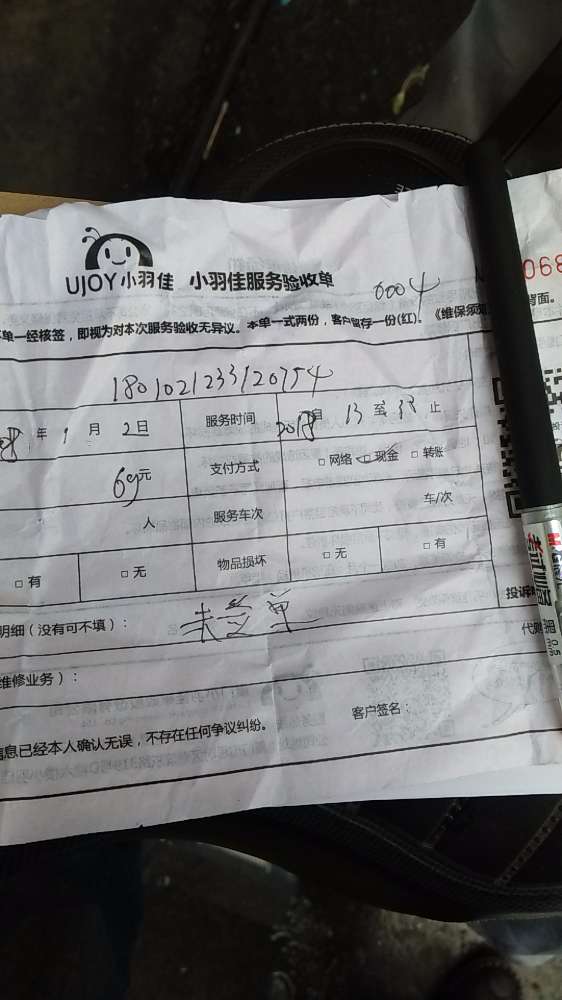 UJOY小羽佳 小羽佳服务验收单
068
0004
单一经核签，即视为对本次服务验收无异议。本单一式两份，客户留存一份(红)。《维保须知 背面。
1801021233120754
年 1 月 2日 服务时间 13 至 止
69元 支付方式 □ 网络 □ 现金 □ 转账
人 服务车次 车/次
□ 有 □ 无 物品损坏 □ 无 □ 有
明细（没有可不填）： 未受单
投诉
代
维修业务）：
信息已经本人确认无误，不存在任何争议纠纷。 客户签名：
考试必备
黑
0.5
mm